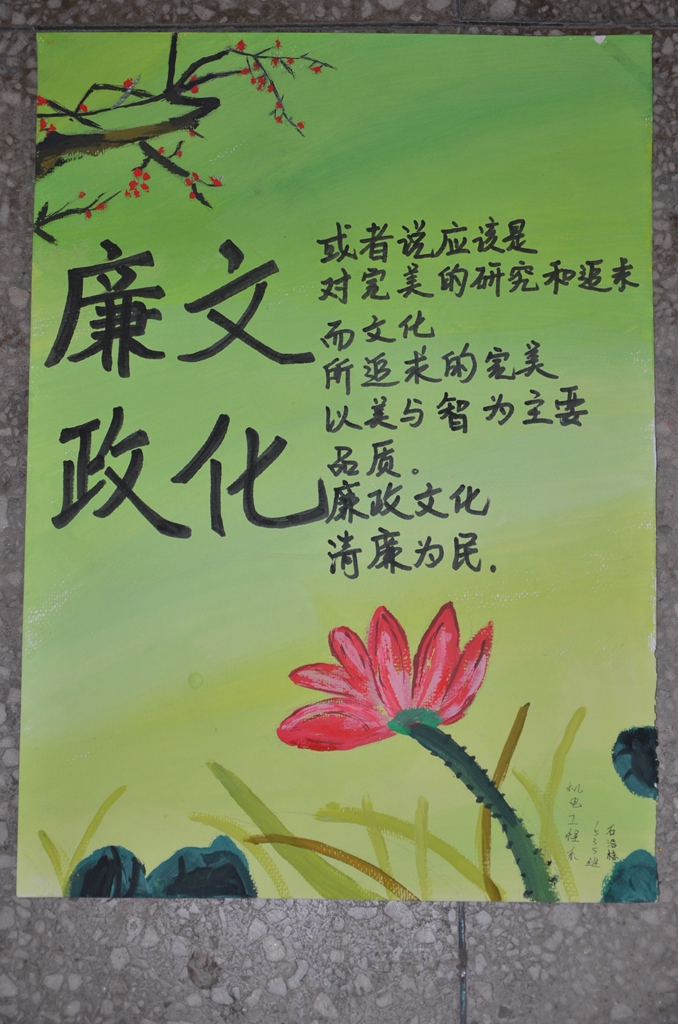 廉政
文化
或者说应该是
对完美的研究和追求
而文化
所追求的完美
以美与智为主要
品质。
廉政文化
清廉为民.
机电工程系
1535班